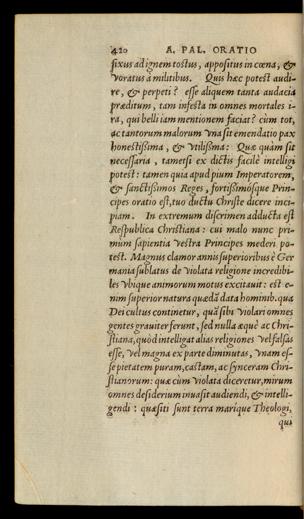 420 A. PAL. ORATIO
fixus ad ignem tostus, appositus in cœna, &
voratus à militibus. Quis hæc potest audi-
re, & perpeti? esse aliquem tanta audacia
præditum, tam infesta in omnes mortales i-
ra, qui belli iam mentionem faciat? cùm tot,
ac tantorum malorum vna sit emendatio pax
honestissima, & vtilissima: Quæ quàm sit
necessaria, tametsi ex dictis facilè intelligi
potest: tamen quia apud pium Imperatorem,
& sanctissimos Reges, fortissimósque Prin-
cipes oratio est, tuo ductu Christe dicere inci-
piam. In extremum discrimen adducta est
Respublica Christiana: cui malo nunc pri-
mùm sapientia vestra Principes mederi po-
test. Magnus clamor annis superioribus è Ger
mania sublatus de violata religione incredibi-
les vbique animorum motus excitauit: est e-
nim superior natura quædã data hominib. qua
Dei cultus continetur, quã sibi violari omnes
gentes grauiter ferunt, sed nulla æquè ac Chri-
stiana, quòd intelligat alias religiones vel falsas
esse, vel magna ex parte diminutas, vnam es-
se pietatem puram, castam, ac synceram Chri-
stianorum: quæ cùm violata diceretur, mirum
omnes desiderium inuasit audiendi, & intelli-
gendi: quæsiti sunt terra marique Theologi,
qui